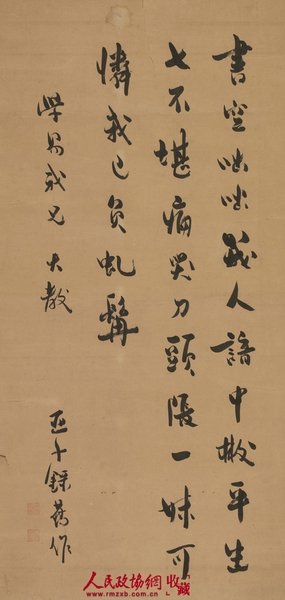 書空咄咄幾人諳中散平生
七不堪痛哭刀頭張一妹可
憐我已負虬髯
學易我兄 大教
亞子錄舊作
人民政協網收藏
www.rmzxb.com.cn